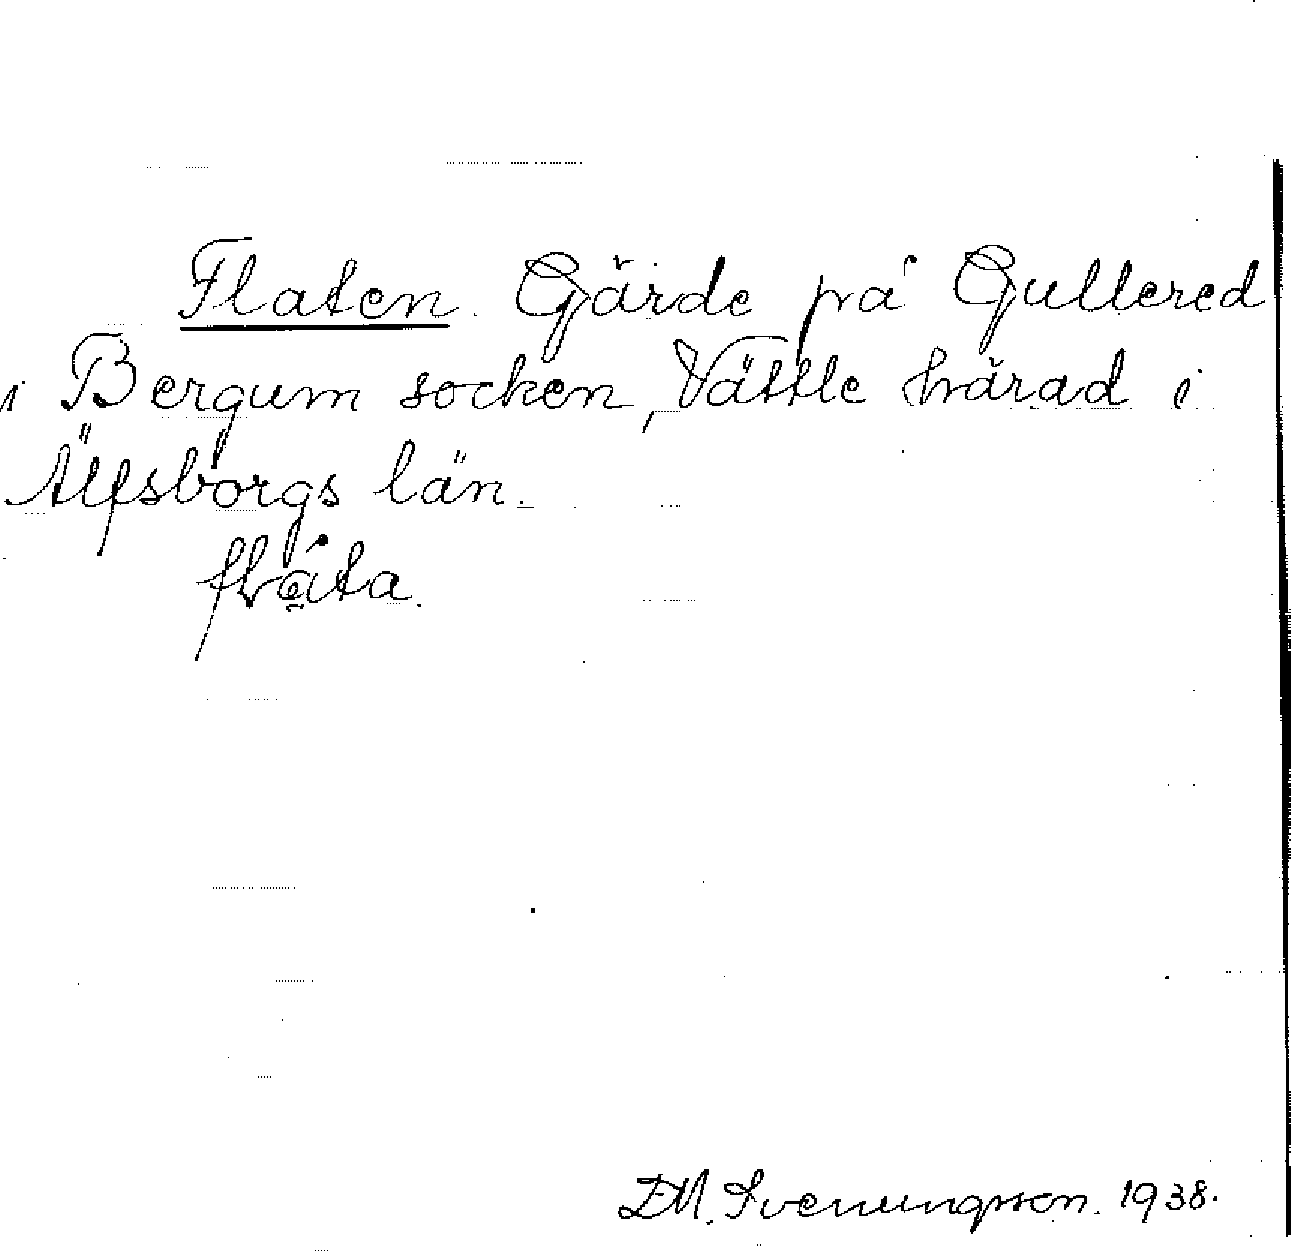 Flaten. Gärde på Gullered
i Bergum socken, Vättle härad i
Älfsborgs län.
flata.
D.M. Svenningsson. 1938.